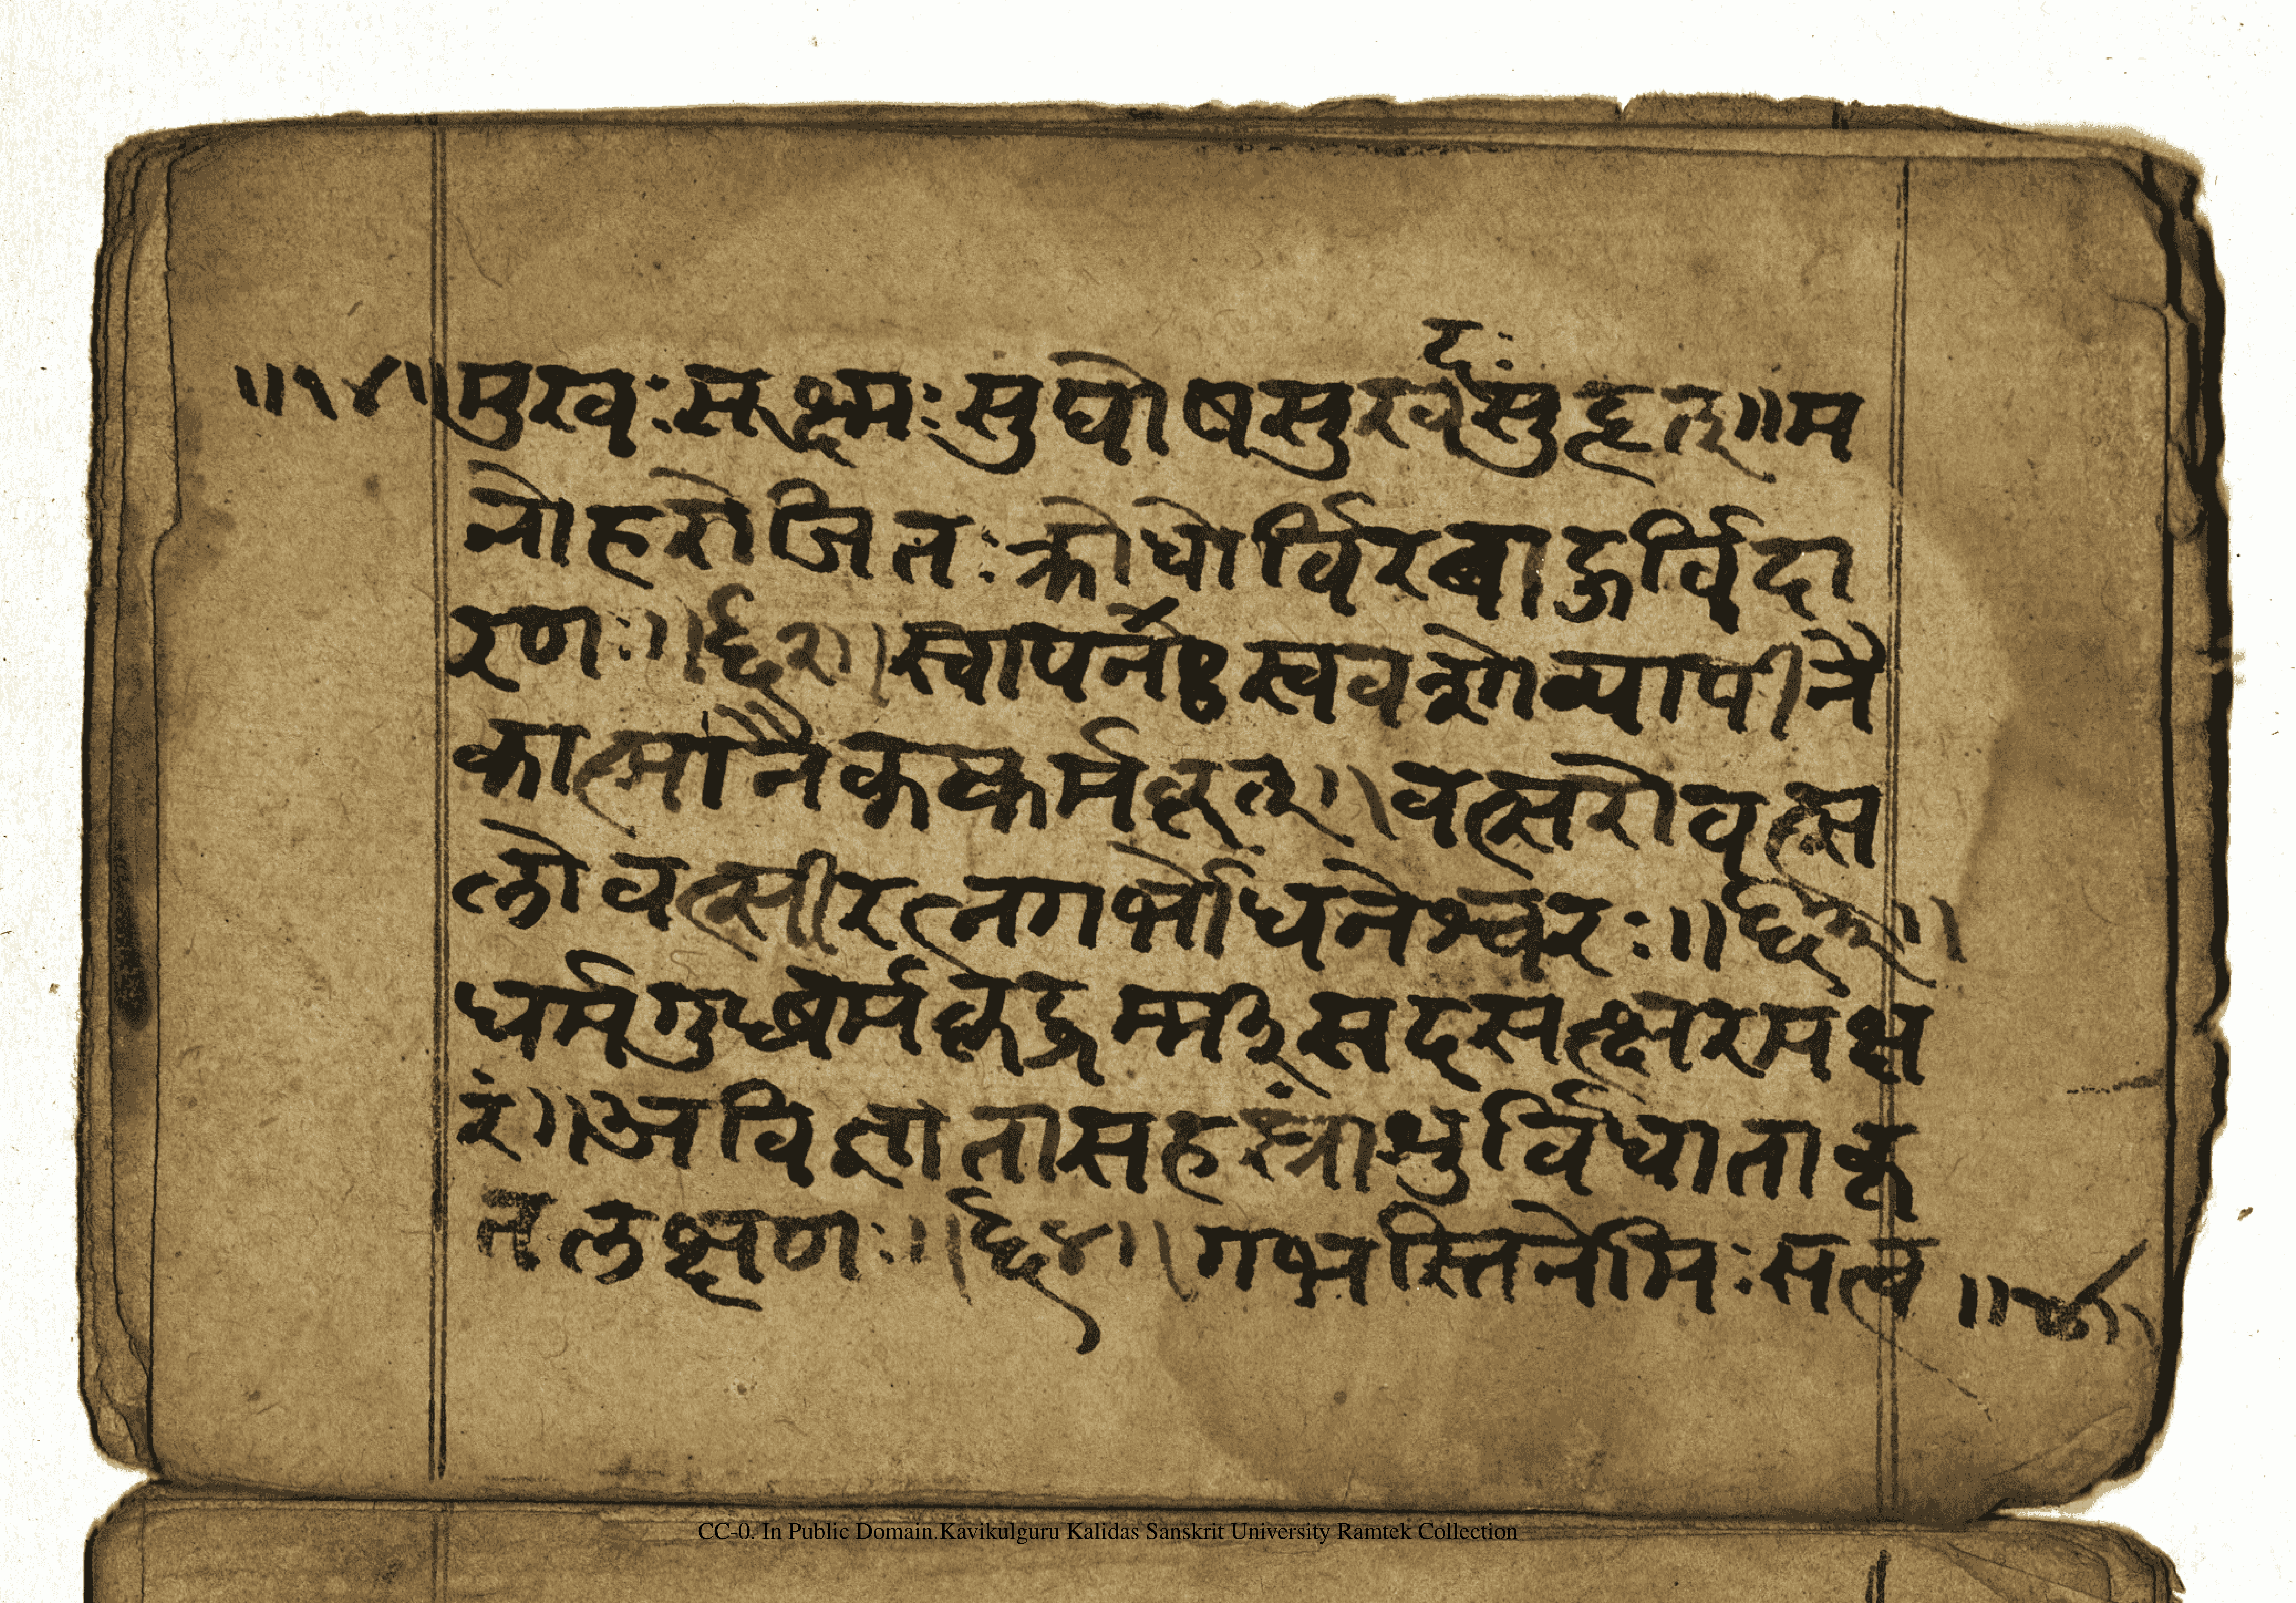 द
॥१४॥ मुखः सूक्ष्मः सुघोष सुखर्दः सुहृत् ॥ म
नोहरोजितःक्रोधोर्विरबाहुर्विदा
रणः ॥ ६२ ॥ स्वापनः स्ववशोव्यापीनै
कात्मानैककर्मकृत् ॥ वत्सरोवत्स
लोवत्सीरत्नगर्भोधनेश्वरः ॥ ६३ ॥
धर्मगुब्धर्मकृद्धर्म्मीसदसत्क्षरमक्ष
रं ॥ अविज्ञातासहस्रांशुर्विधाताकृ
तलक्षणः ॥ ६४ ॥ गभस्तिनेमिःसत्व ॥
CC-0. In Public Domain.Kavikulguru Kalidas Sanskrit University Ramtek Collection